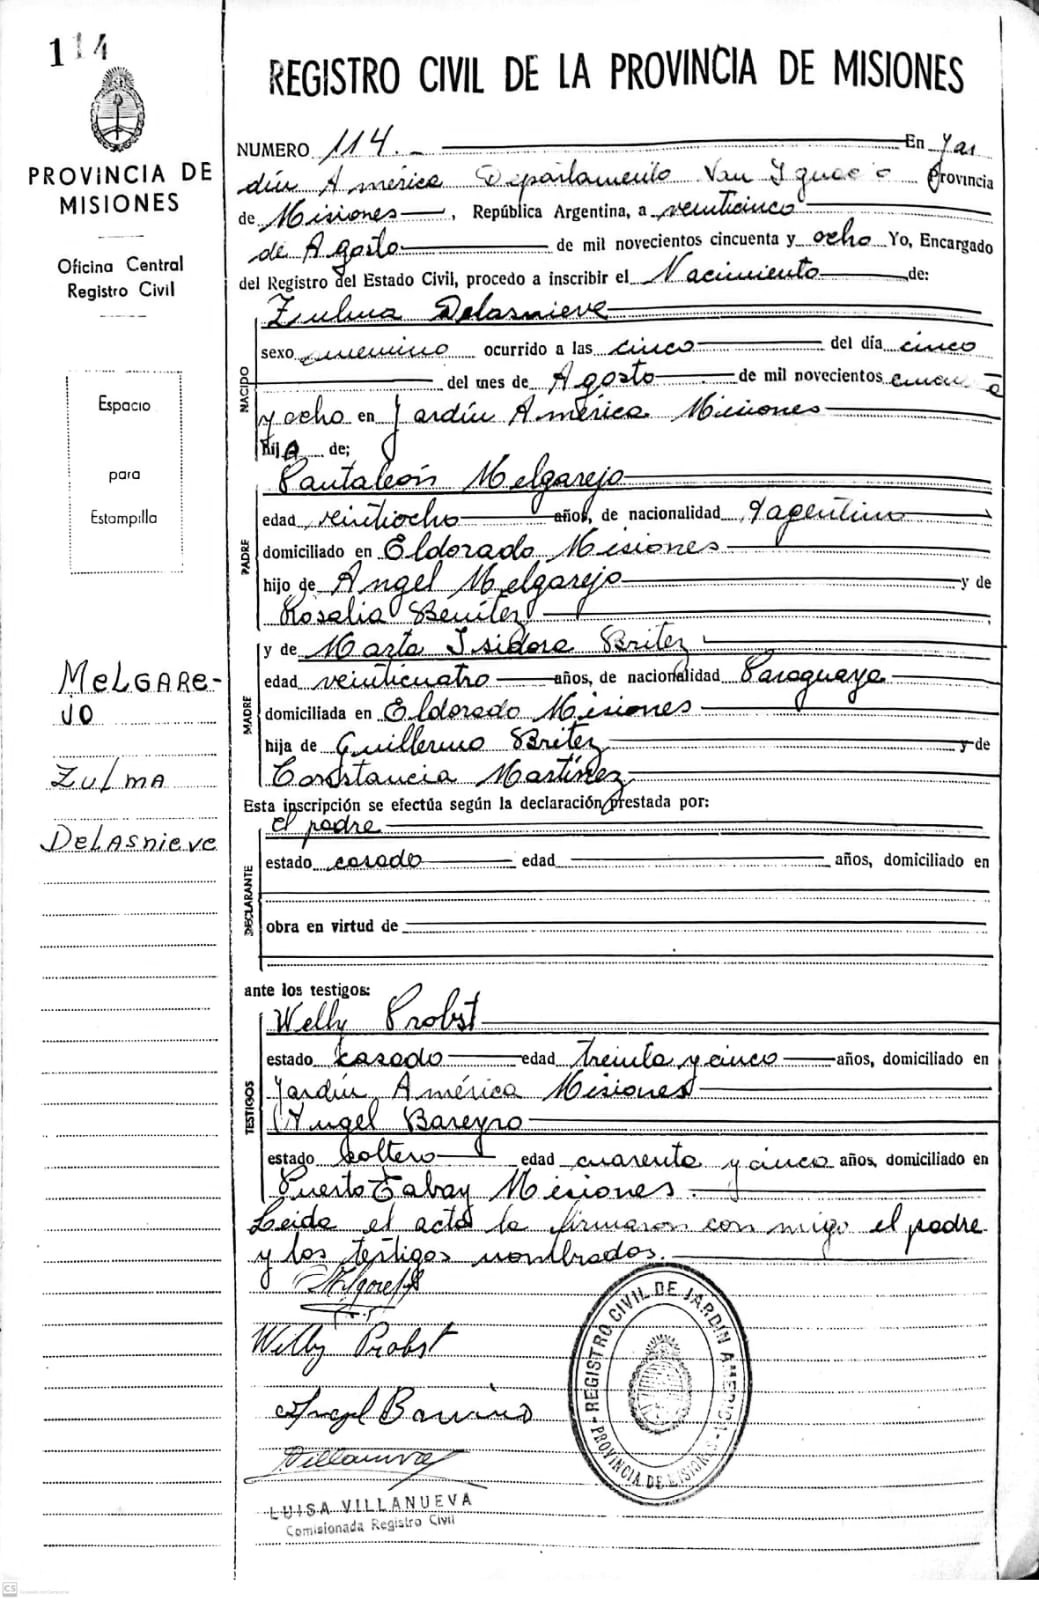 114
PROVINCIA DE
MISIONES
Oficina Central
Registro Civil
Espacio
para
Estampilla
MELGARE-
JO
ZULMA
DELASNIEVE
REGISTRO CIVIL DE LA PROVINCIA DE MISIONES
NUMERO 114.- En Jar
dín América Departamento San Ignacio Provincia
de Misiones, República Argentina, a veinticinco
de Agosto de mil novecientos cincuenta y ocho Yo, Encargado
del Registro del Estado Civil, procedo a inscribir el Nacimiento de:
NACIDO
Zulma Delasnieve
sexo femenino ocurrido a las cinco del día cinco
del mes de Agosto de mil novecientos cincuenta
y ocho en Jardín América Misiones
hija de;
PADRE
Pantaleón Melgarejo
edad veintiocho años, de nacionalidad Argentino
domiciliado en Eldorado Misiones
hijo de Angel Melgarejo y de
Rosalia Benítez
MADRE
y de Marta Isidora Britez
edad veinticuatro años, de nacionalidad Paraguaya
domiciliada en Eldorado Misiones
hija de Guillermo Britez y de
Constancia Martínez
Esta inscripción se efectúa según la declaración prestada por:
DECLARANTE
el padre
estado casado edad años, domiciliado en
obra en virtud de
ante los testigos:
TESTIGOS
Welly Probst
estado casado edad treinta y cinco años, domiciliado en
Jardín América Misiones
Angel Bareyro
estado soltero edad cuarenta y cinco años, domiciliado en
Puerto Tabay Misiones.
Leida el acta la firmaron con migo el padre
y los testigos nombrados.
Willy Probst
Villanueva
LUISA VILLANUEVA
Comisionada Registro Civil
REGISTRO CIVIL DE JARDIN AMERICA
PROVINCIA DE MISIONES
CS